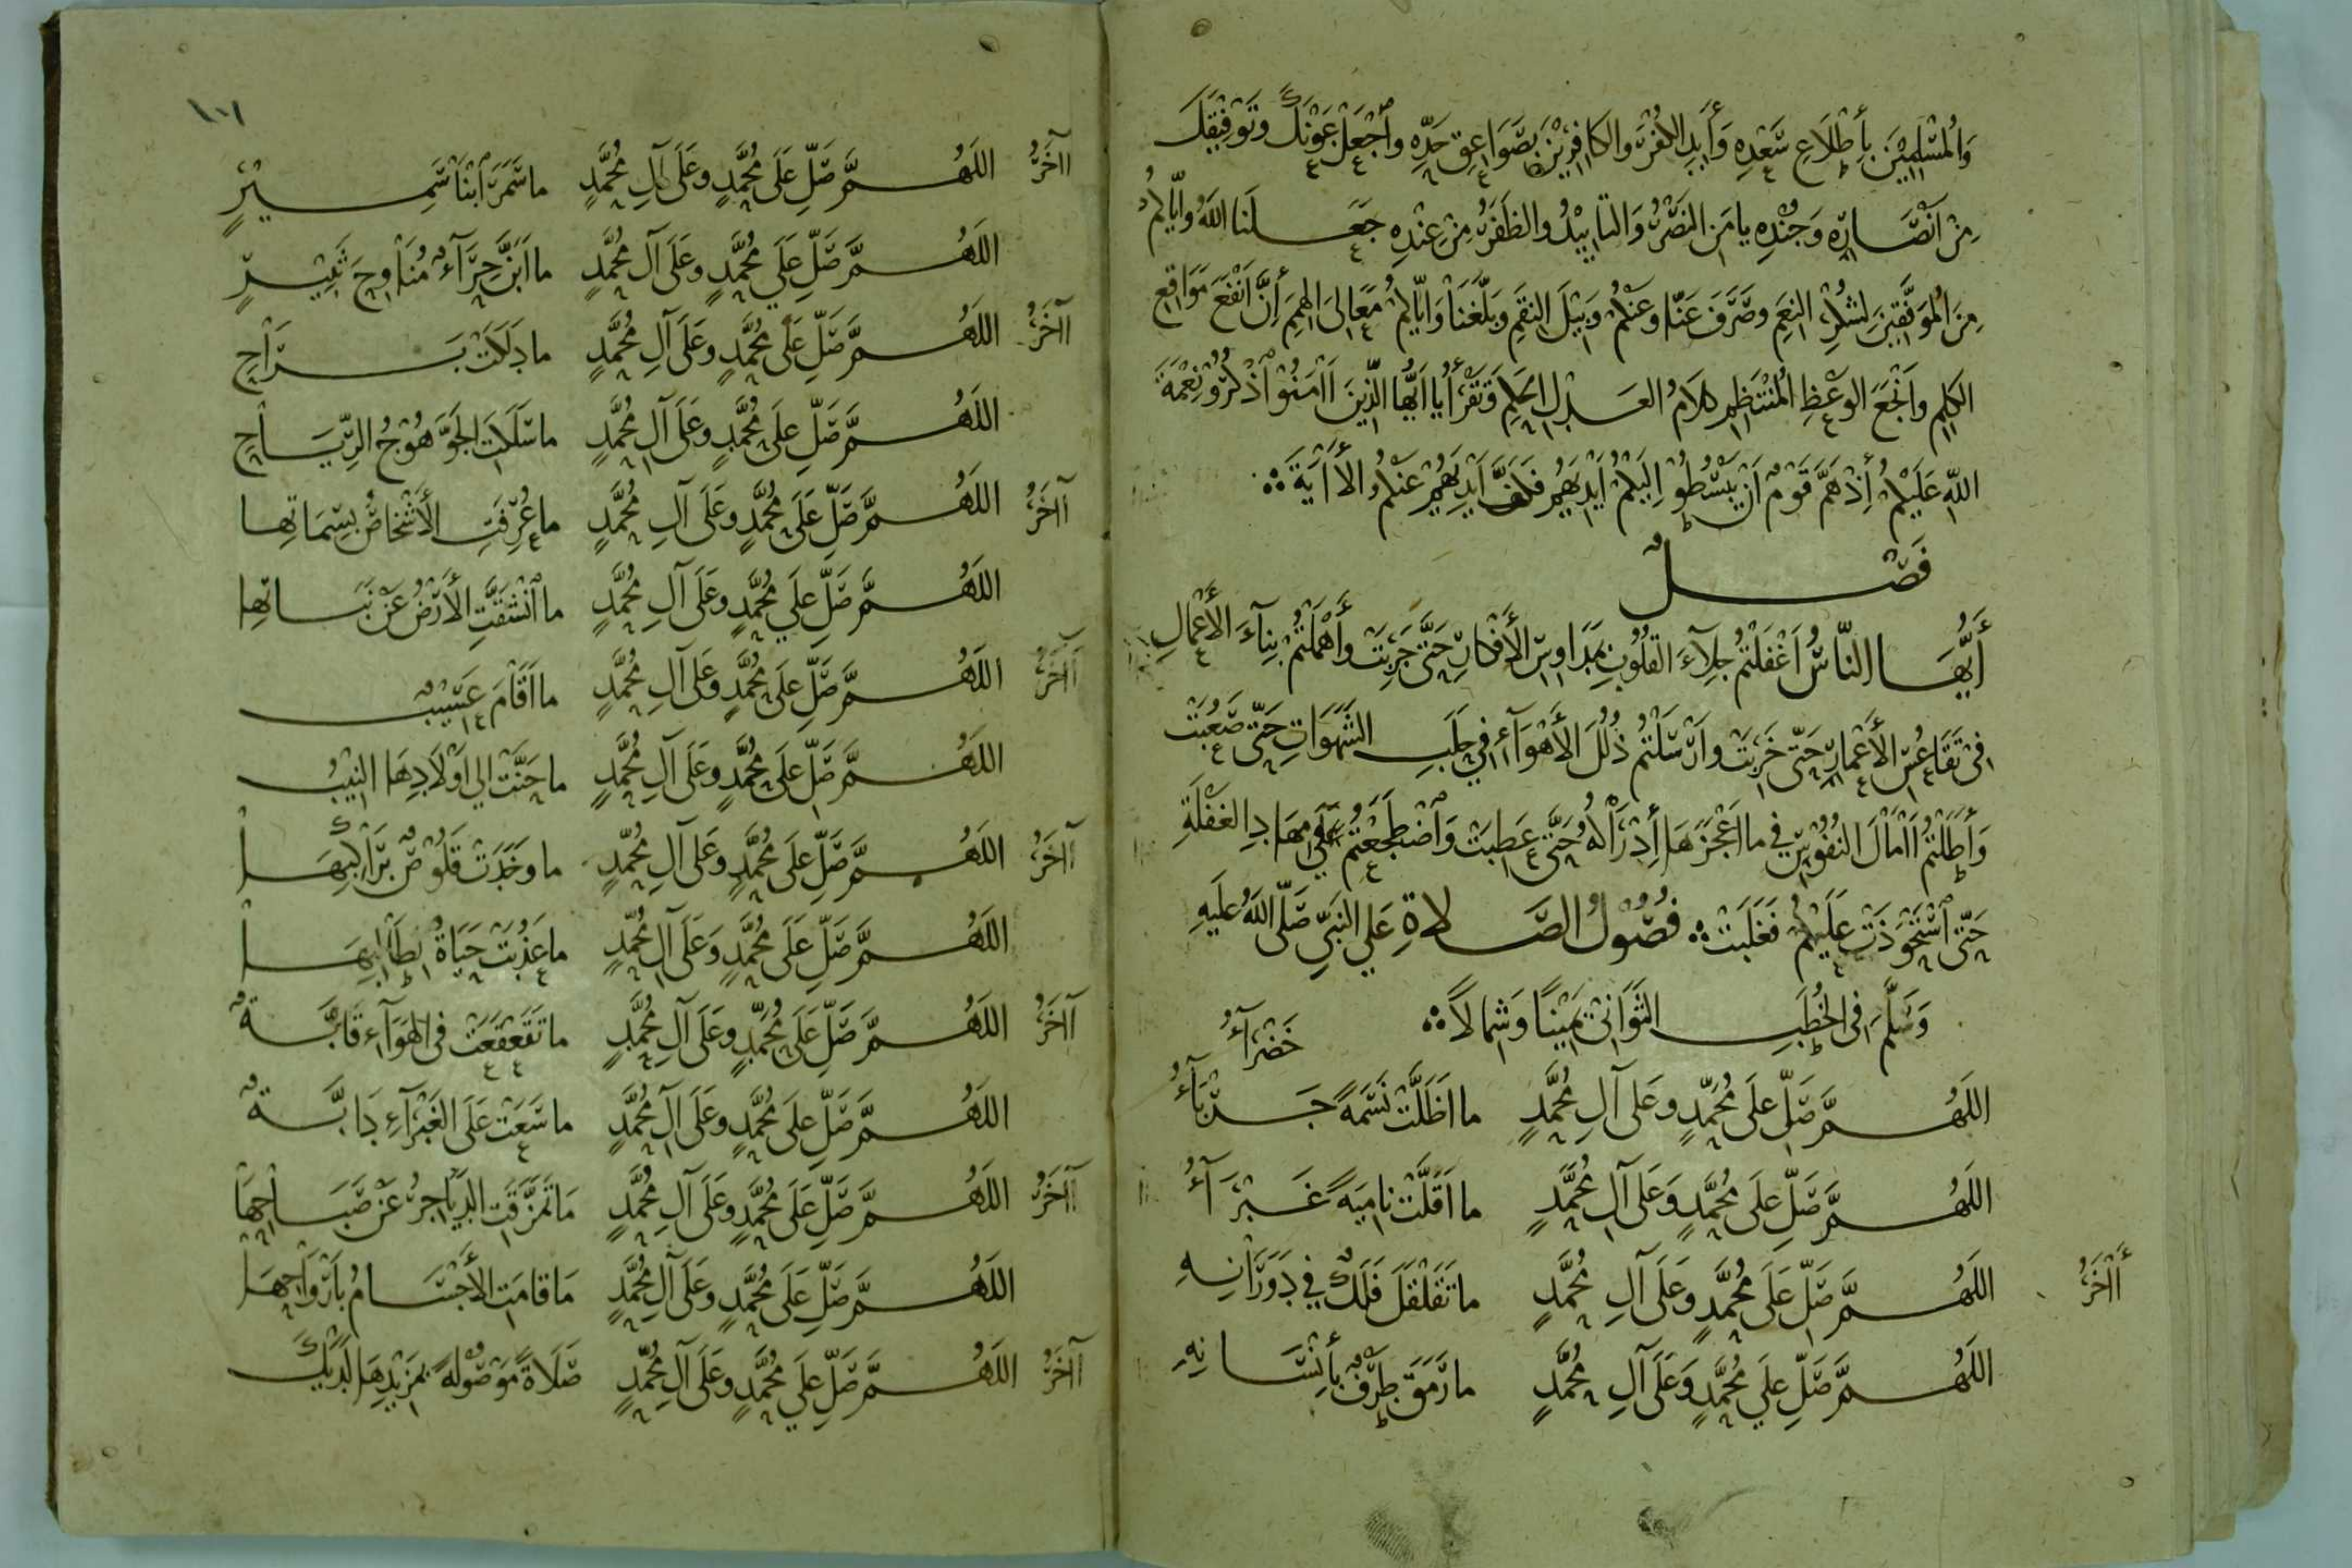 وَالمُسْلِمِيْنَ بِأِطْلَاعِ سَعْدِهِ وَأَبِدِ الكُفْرَ والكَافِرِيْنَ بِصَوَاعِقِ حَدِّهِ واَجْعَلْ عَوْنَكَ وتَوْفِيْقِكَ
مِنْ اَنْصَارِهِ وَجُنْدِهِ يا مَنِ النَصْرُ وَالتَأيِيْدُ والظَفَرُ مِنْ عِنْدِهِ جَعَلَنا اللّهُ واِيّاكُمْ
مِنَ المُوَفَّقِيْنَ لِشُكْرِ النِعَمِ وصَرَفَ عَنّا وعَنْكُمْ وَبِيْلَ النِقَمِ وبَلَّغَنَا وَاِيّاكُمْ مَعَالِىَ الهِمَمِ اِنَّ اَنْفَعَ مَوَاقِعِ
الكَلِمِ واَنْجَعَ الوَعْظِ المُنْتَظِمِ كلَامُ العَدْلِ الحَكِمِ وَتَقْرَأُ يا اَيُّها الَّذِينَ آمَنُوْا اذْكُرُوْ نِعْمَةَ
اللّهِ عَلَيْكُمْ أِذْ هَمَّ قَوْمٌ اَنْ يَبْسُطُوْ اِلَيْكُمْ اَيْدِيَهُمْ فَكَفَّ اَيْدِيَهُمْ عَنْكُمْ الأَايَةَ
فَصْلٌ
أَيُّهَا النّاسُ اَغْفَلْتُمْ جِلَآءَ القُلُوْبِ بِمَدَاوِسِ الأَفْكارِ حَتَّى جَرِبَتْ وأَهْمَلْتُمْ بِنآءَ الأَعْمَالِ
فِىْ تَقَاعُسِ الأَعْمارِ حَتّى خَرِبَتْ واَرْسَلْتُمْ ذُلُلَ الأَهْوَآءِ فِي حَلَبِ الشَهَوَاتِ حَتّى صَعُبَتْ
وَأَطَلْتُمْ اَامَالَ النُفُوْسِ فِي ما اَعْجَزَهَا أِدْرَاكُهُ حَتَّى عَطِبَتْ وَاضْطَجَعْتُمْ عَلَى مِهَادِ الغَفْلَةِ
حَتّى اسْتَحْوَذَتْ عَلَيْكُمْ فَغَلَبَتْ فُصُوْلُ الصَّلاةِ عَلي النَبِيِّ صَلّى اللّهُ عَلَيهِ
وَسَلَّمَ فِى الخُطَبِ الثَوَانِىْ يَمِيْنًا وَشِمالاً
خَضْرَآءُ
اللَّهُمَّ صَلِّ عَلَى مُحَمَّدٍ وعَلَى آلِ مُحَمَّدٍ ما اَظَلَّتْ نَسَمَةً جَرْبَآءُ
اللَّهُمَّ صَلِّ عَلَى مُحَمَّدٍ وَعَلَى آلِ مُحَمَّدٍ ما اَقَلَّتْ نامِيَةً غَبْرَآءُ
أَاخَرُ اللَّهُمَّ صَلِّ عَلَى مُحَمَّدٍ وعَلَى آلِ مُحَمَّدٍ ما تَقَلْقَلَ فَلَكٌ فِي دَوَرَانِهِ
اللَّهُمَّ صَلِّ عَلَي مُحَمَّدٍ وَعَلَى آلِ مُحَمَّدٍ ما رَمَقَ طَرْفٌ بِأِنْسَانِهِ
١٠١
اَاخَرُ اللَّهُمَّ صَلِّ عَلَى مُحَمَّدٍ وعَلَى آلِ مُحَمَّدٍ ما سَمَرَ ابْنا سَمِيْرٍ
اللَّهُمَّ صَلِّ عَلَي مُحَمَّدٍ وعَلَى آلِ مُحَمَّدٍ ما اَبَنَّ حِرَآءٌ مُنَاوِحَ ثَبِيْرٍ
اَاخَرُ اللَّهُمَّ صَلِّ عَلَى مُحَمَّدٍ وعَلَى آلِ مُحَمَّدٍ ما دَلَكَتْ بَرَاحِ
اللَّهُمَّ صَلِّ عَلَى مُحَمَّدٍ وعَلَى آلِ مُحَمَّدٍ ما سَلَكَتِ الجَوَّ هُوْجُ الرِّيَاحِ
اَاخَرُ اللَّهُمَّ صَلِّ عَلَى مُحَمَّدٍ وعَلَى آلِ مُحَمَّدٍ ما عُرِّفَتِ الأَشْخاصُ بِسِمَاتِها
اللَّهُمَّ صَلِّ عَلَي مُحَمَّدٍ وعَلَى آلِ مُحَمَّدٍ ما انْشَقَّتِ الأَرْضُ عَنْ نَبَاتِها
اَاخَرُ اللَّهُمَّ صَلِّ عَلَى مُحَمَّدٍ وعَلَى آلِ مُحَمَّدٍ ما اَقَامَ عَسِيْبٌ
اللَّهُمَّ صَلِّ عَلَى مُحَمَّدٍ وعَلَى آلِ مُحَمَّدٍ ما حَنَّتْ الي اَوْلَادِهَا النِيْبُ
اَاخَرُ اللَّهُمَّ صَلِّ عَلَى مُحَمَّدٍ وعَلَى آلِ مُحَمَّدٍ ما وخَدَتْ قَلُوْصٌ بِرَاكِبِهَا
اللَّهُمَّ صَلِّ عَلَى مُحَمَّدٍ وَعَلَى آلِ مُحَمَّدٍ ما عَذُبَتْ حَيَاةٌ لِطَالِبِهَا
اَاخَرُ اللَّهُمَّ صَلِّ عَلَى مُحَمَّدٍ وعَلَى آلِ مُحَمَّدٍ ما تَقَعْقَعَتْ فِى الهَوَآءِ قَابَّةٌ
اللَّهُمَّ صَلِّ عَلَى مُحَمَّدٍ وعَلَى آلِ مُحَمَّدٍ ما سَعَتْ عَلَى الغَبْرَآءِ دَابَّةٌ
اَاخَرُ اللَّهُمَّ صَلِّ عَلَى مُحَمَّدٍ وعَلَى آلِ مُحَمَّدٍ مَا تَمَزَّقَتِ الدَيَاجِرُ عَنْ صَبَاحِهَا
اللَّهُمَّ صَلِّ عَلَى مُحَمَّدٍ وعَلَى آلِ مُحَمَّدٍ مَا قامَتِ الأَجْسَامُ بأَرْوَاحِهَا
اَاخَرُ اللَّهُمَّ صَلِّ عَلَي مُحَمَّدٍ وعَلَى آلِ مُحَمَّدٍ صَلَاةً مَوْصُوْلَةً بِمَزِيْدِهَا لَدَيْكَ